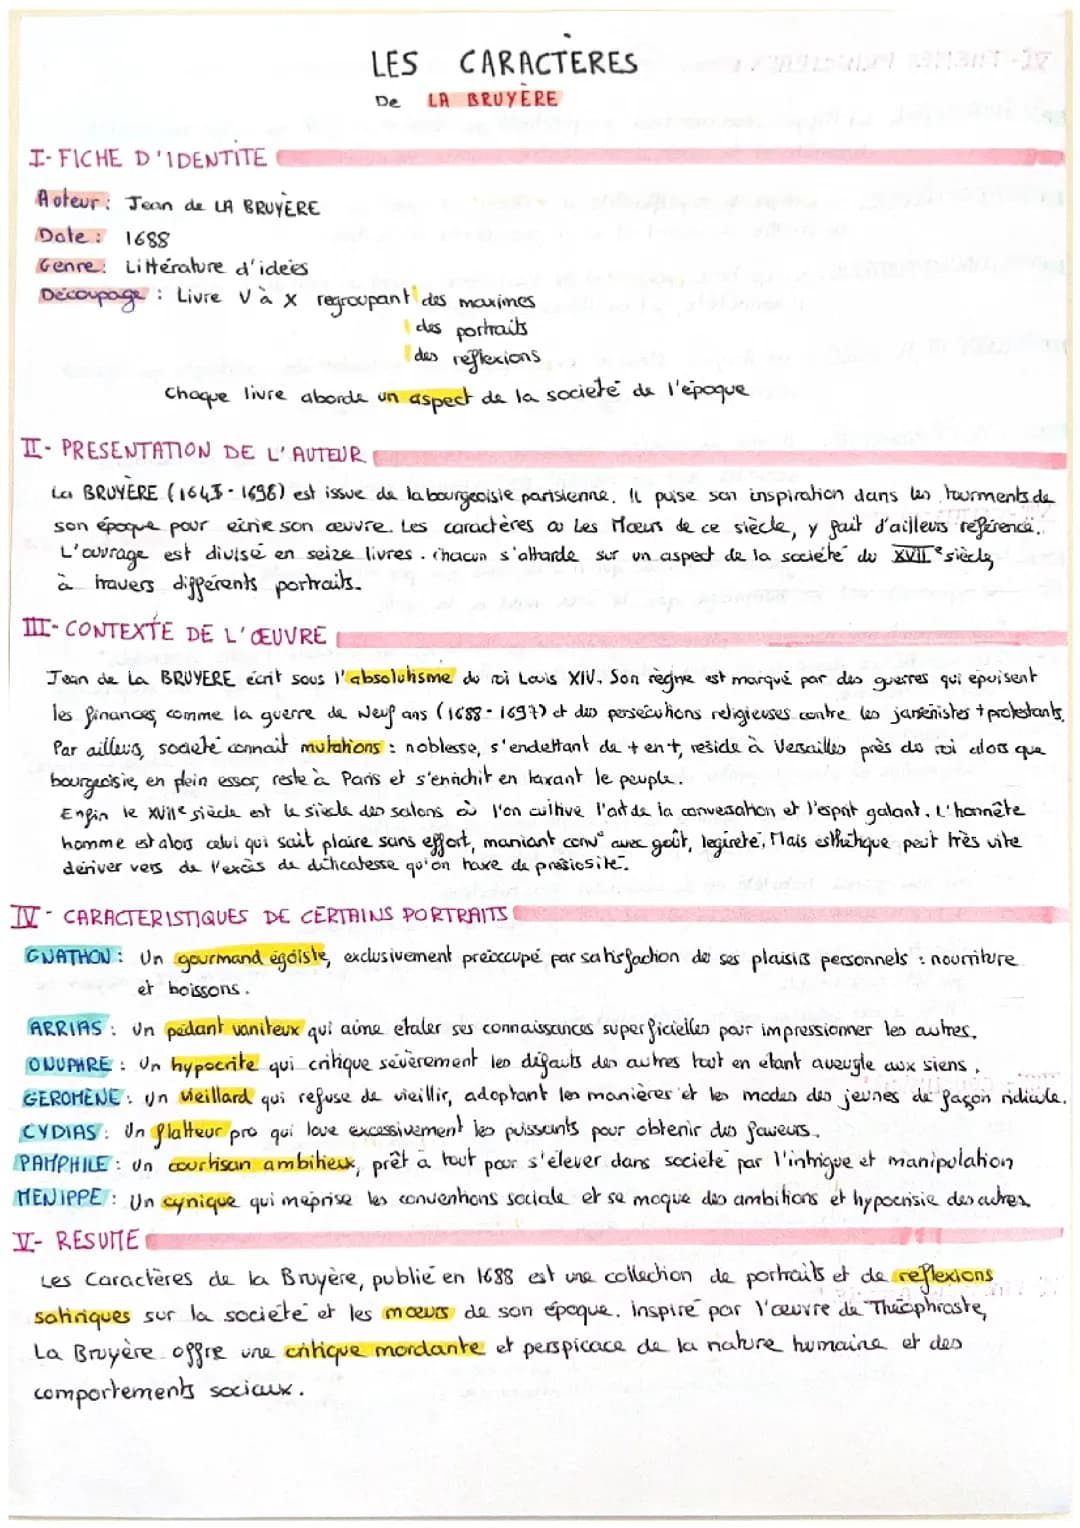 LES CARACTÈRES
De LA BRUYÈRE
I- FICHE D'IDENTITÉ
Auteur : Jean de LA BRUYÈRE
Date : 1688
Genre : Littérature d'idées
Découpage : Livre V à X regroupant des maximes
des portraits
des réflexions
Chaque livre aborde un aspect de la société de l'époque
II- PRESENTATION DE L'AUTEUR
La BRUYÈRE (1645-1696) est issue de la bourgeoisie parisienne. Il puise son inspiration dans les tourments de
son époque pour écrie son œuvre. Les caractères ou Les Mœurs de ce siècle, y fait d'ailleurs référence.
L'ouvrage est divisé en seize livres. Chacun s'attarde sur un aspect de la société du XVIIe siècle,
à travers différents portraits.
III- CONTEXTE DE L'ŒUVRE
Jean de La BRUYERE écrit sous l'absolutisme du roi Louis XIV. Son règne est marqué par des guerres qui épuisent
les finances, comme la guerre de Neuf ans (1688-1697) et des persécutions religieuses contre les jansénistes + protestants.
Par ailleurs, société connait mutations : noblesse, s'endettant de + en +, réside à Versailles près du roi alors que
bourgeoisie, en plein essor, reste à Paris et s'enrichit en taxant le peuple.
Enfin le XVIIe siècle est le siècle des salons où l'on cultive l'art de la conversation et l'esprit galant. L'honnête
homme est alors celui qui sait plaire sans effort, maniant conv° avec goût, légèreté. Mais esthétique peut très vite
dériver vers de l'excès de délicatesse qu'on taxe de présiosité.
IV- CARACTERISTIQUES DE CERTAINS PORTRAITS
GNATHON : Un gourmand égoïste, exclusivement préoccupé par satisfaction de ses plaisirs personnels : nourriture
et boissons.
ARRIAS : Un pédant vaniteux qui aime étaler ses connaissances superficielles pour impressionner les autres.
ONUPHRE : Un hypocrite qui critique sévèrement les défauts des autres tout en étant aveugle aux siens.
GEROMÈNE : Un vieillard qui refuse de vieillir, adoptant les manières et les modes des jeunes de façon ridicule.
CYDIAS : Un flatteur pro qui loue excessivement les puissants pour obtenir des faveurs.
PAMPHILE : Un courtisan ambitieux, prêt à tout pour s'élever dans société par l'intrigue et manipulation
MENIPPE : Un cynique qui méprise les conventions sociale et se moque des ambitions et hypocrisie des autres.
V- RESUME
Les Caractères de la Bruyère, publié en 1688 est une collection de portraits et de reflexions
satiriques sur la société et les mœurs de son époque. inspiré par l'œuvre de Théophraste,
La Bruyère offre une critique mordante et perspicace de la nature humaine et des
comportements sociaux.